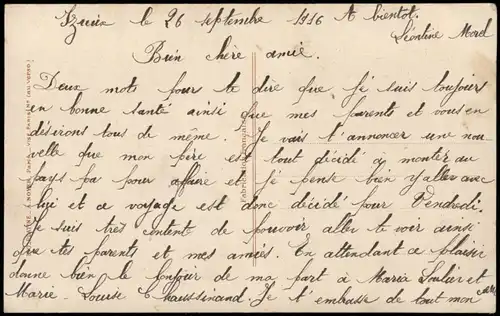 Izeure le 26 septembre 1916 A bientot.
Léontine Morel
Bien chère amie.
Deux mots pour te dire que je suis toujours
en bonne santé ainsi que mes parents et vous en
désirons tous de même. Je vais t'annoncer une nou-
velle que mon père est tout décidé à monter au
pays pa pour affaire et je pense bien y aller avec
lui et ce voyage est donc décidé pour Vendredi.
Je suis très contente de pouvoir aller te voir ainsi
que tes parents et mes amies. En attendant ce plaisir
donne bien le bonjour de ma part à Maria Soulier et
Marie-Louise Chaussinand. Je t'embrasse de tout mon
Fabrication Française